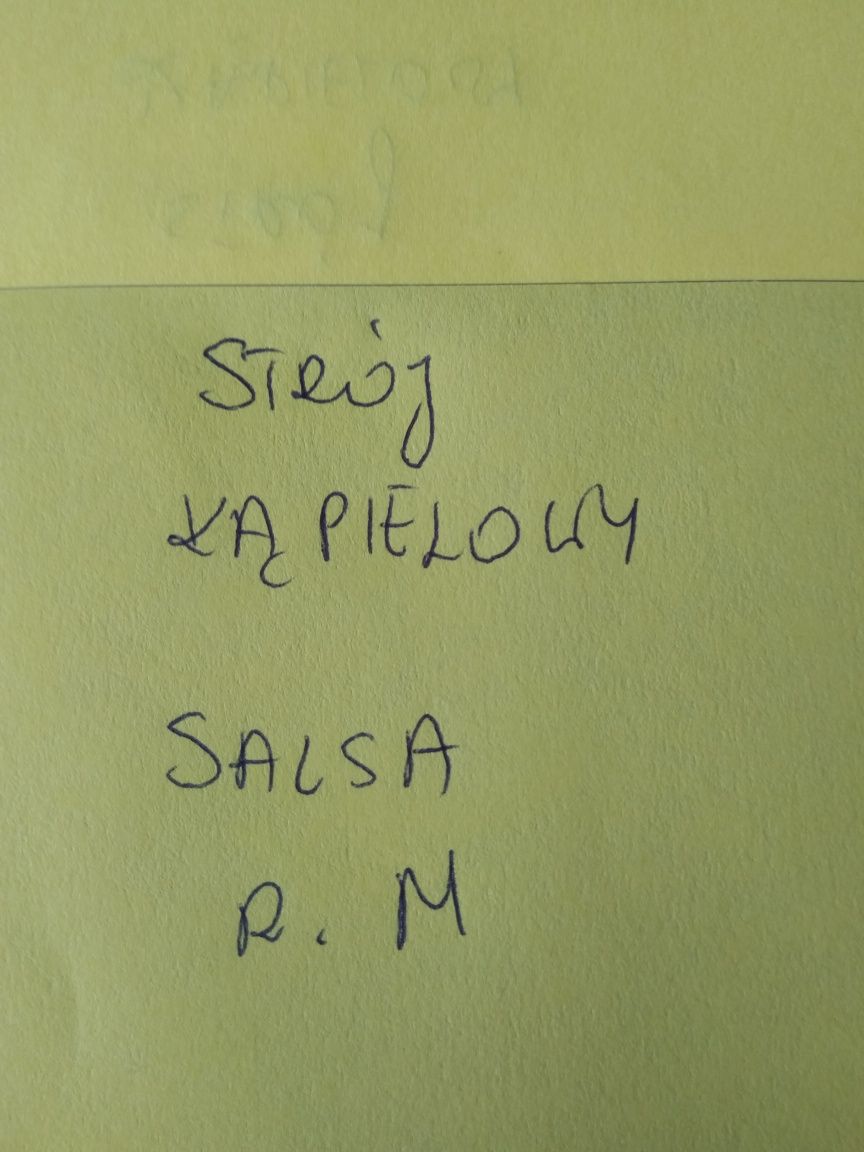 STRÓJ
KĄPIELOWY
SALSA
R. M